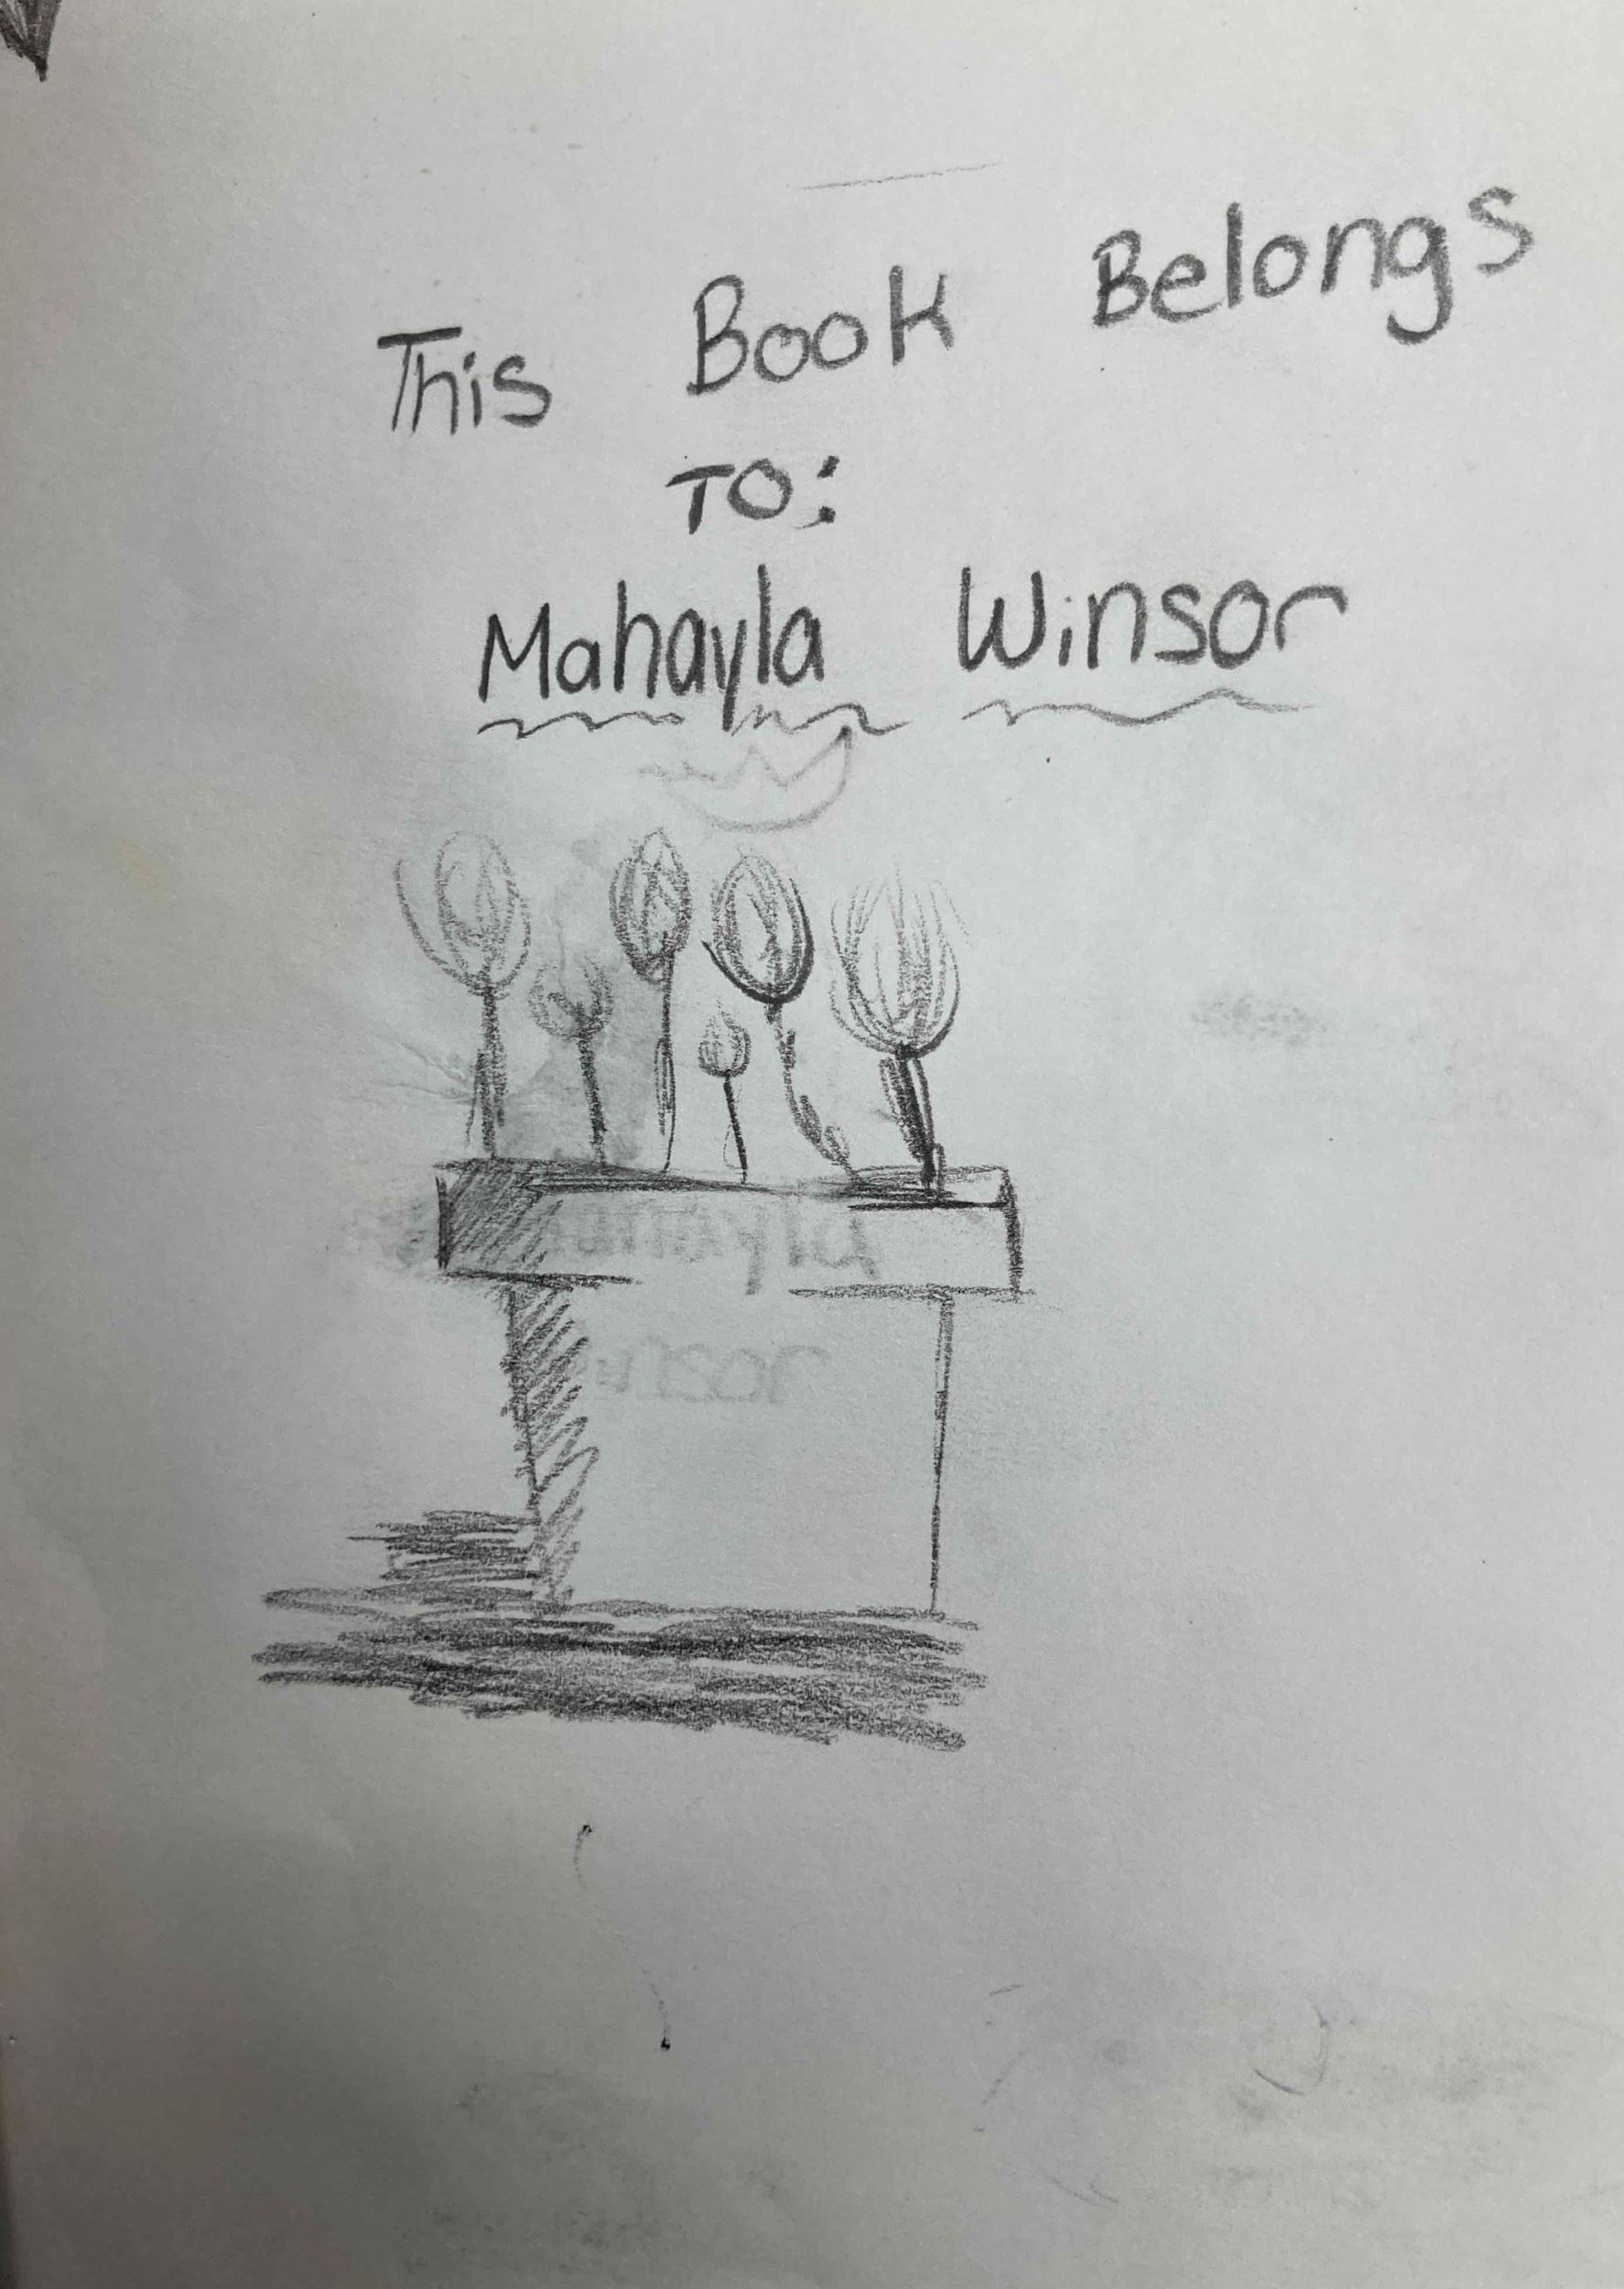 This Book Belongs
To:
Mahayla Winsor